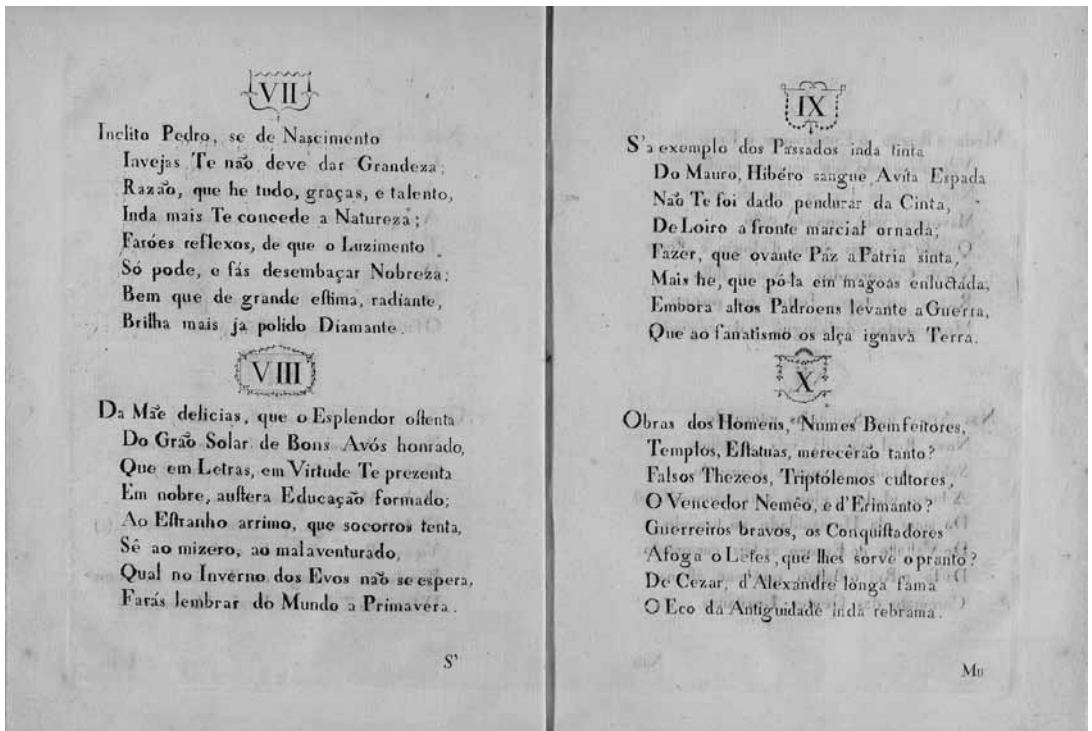 VII
Inclito Pedro, se de Nascimento
Invejas Te naõ deve dar Grandeza;
Razaõ, que he tudo, graças, e talento,
Inda mais Te concede a Natureza;
Faróes reflexos, de que o Luzimento
Só pode, e fás desembaçar Nobreza:
Bem que de grande eſtima, radiante,
Brilha mais ja polido Diamante.
VIII
Da Mãe delicias, que o Esplendor oſtenta
Do Graõ Solar de Bons Avós honrado,
Que em Letras, em Virtude Te prezenta
Em nobre, auſtera Educaçaõ formado;
Ao Eſtranho arrimo, que socorros tenta,
Sê ao mizero, ao malaventurado,
Qual no Inverno dos Evos naõ se espera,
Farás lembrar do Mundo a Primavera.
S'
IX
S'a exemplo dos Passados inda tinta
Do Mauro, Hibéro sangue, Avíta Espada
Naõ Te foi dado pendurar da Cinta,
De Loiro a fronte marcial ornada;
Fazer, que ovante Páz a Patria sinta,
Mais he, que pô-la em magoas enluctáda,
Embora altos Padroens levante a Guerra,
Que ao fanatismo os alça ignava Terra.
X
Obras dos Homens, Numes Bemfeitores,
Templos, Eſtatuas, merecêraõ tanto?
Falsos Thezeos, Triptólemos cultores,
O Vencedor Nemêo, e d'Erimanto?
Guerreiros bravos, os Conquiſtadores
Afoga o Letes, que lhes sorve o pranto?
De Cezar, d'Alexandre longa fama
O Eco da Antiguidade inda rebrama.
Mu